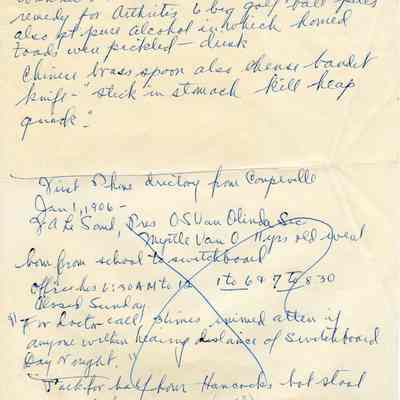 remedy for Arthritis 6 big golf ball pills
also pt pure alcohol in which horned
toads were pickled - dusk
Chinese brass spoon also chinese bandit
knife - "stick in stomach kill heap
quick".
First Phone directory from Coupeville
Jan 1, 1906 -
F A Le Sourd, Pres O S Van Olinda Sec
Myrtle Van O 11 yrs old went
hom from school to switchboard
office hrs 6:30 AM to 12 1 to 6 & 7 to 8:30
closed Sunday
"For doctor call, phones united atten if
anyone within hearing distance of switchboard
Day or night."
"Pack for half hour Hancocks hot stool